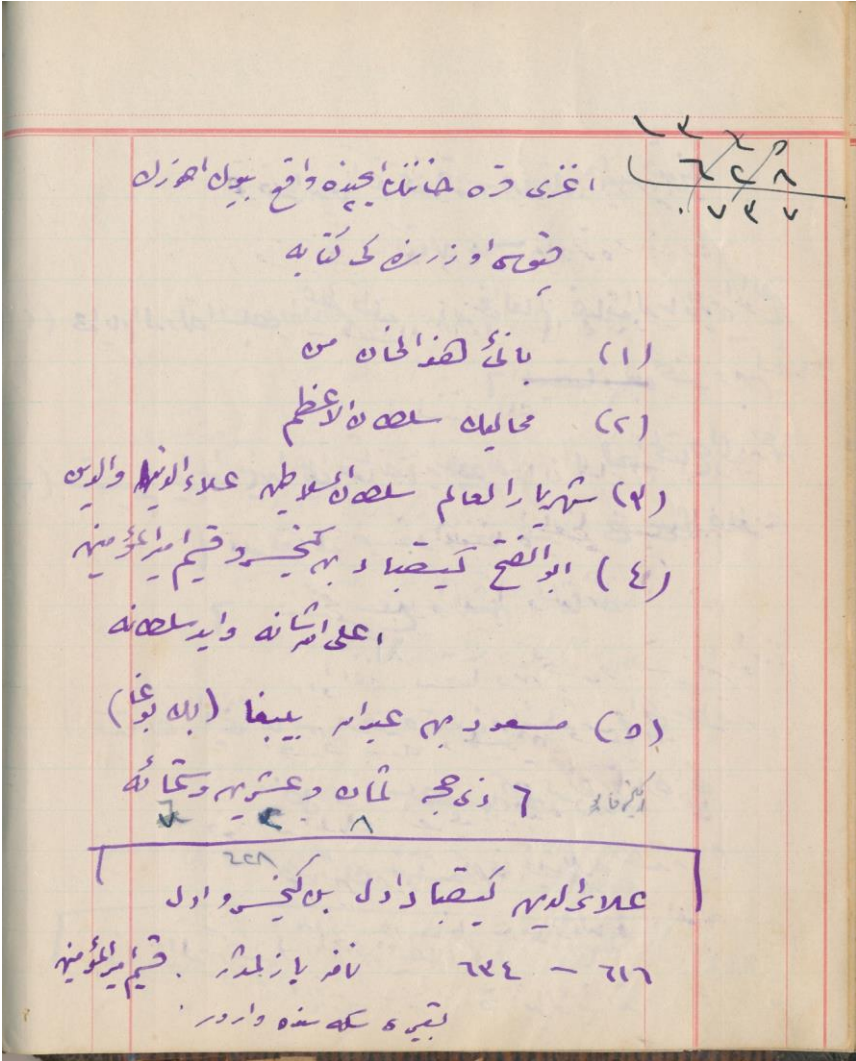 ١٣
٦٢٨
٠٧٣٧
اغزى قره خاننك ايچنده واقع بيوك اهورك
قپوسى اوزرنده كى كتابه
(١) بانئ هذا الخان من
(٢) مماليك سلطان الاعظم
(٣) شهريار العالم سلطان السلاطين علاء الدنيا والدين
(٤) ابو الفتح كيقباد بن كيخسرو قسيم امير المؤمنين
اعلى الله شانه وايد سلطانه
(٥) مسعود بن عبدالله يلبغا (بك بوغا)
٦ ذى حجه ثمان وعشرين وستمائه
٦ ٢ ٨
٦٢٨
علاء الدين كيقباد اول بن كيخسرو اول
٦١٦ — ٦٣٤ قسيم امير المؤمنين
تعبيرى سكه سنده واردر